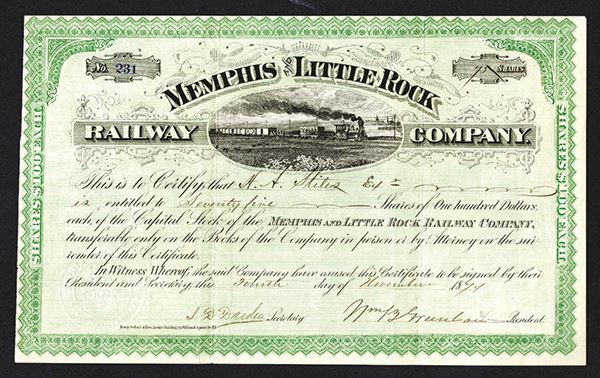 No. 231
75 SHARES.
MEMPHIS AND LITTLE ROCK
RAILWAY COMPANY.
SHARES $100 EACH
SHARES $100 EACH
This is to Certify, that A. A. Stiles Esqr
is entitled to Seventy five Shares of One Hundred Dollars
each, of the Capital Stock of the MEMPHIS AND LITTLE ROCK RAILWAY COMPANY,
transferable only on the Books of the Company in person or by Attorney on the sur
render of this Certificate.
In Witness Whereof, the said Company have caused this Certificate to be signed by their
President and Secretary, this day of November 1874
Secretary
President